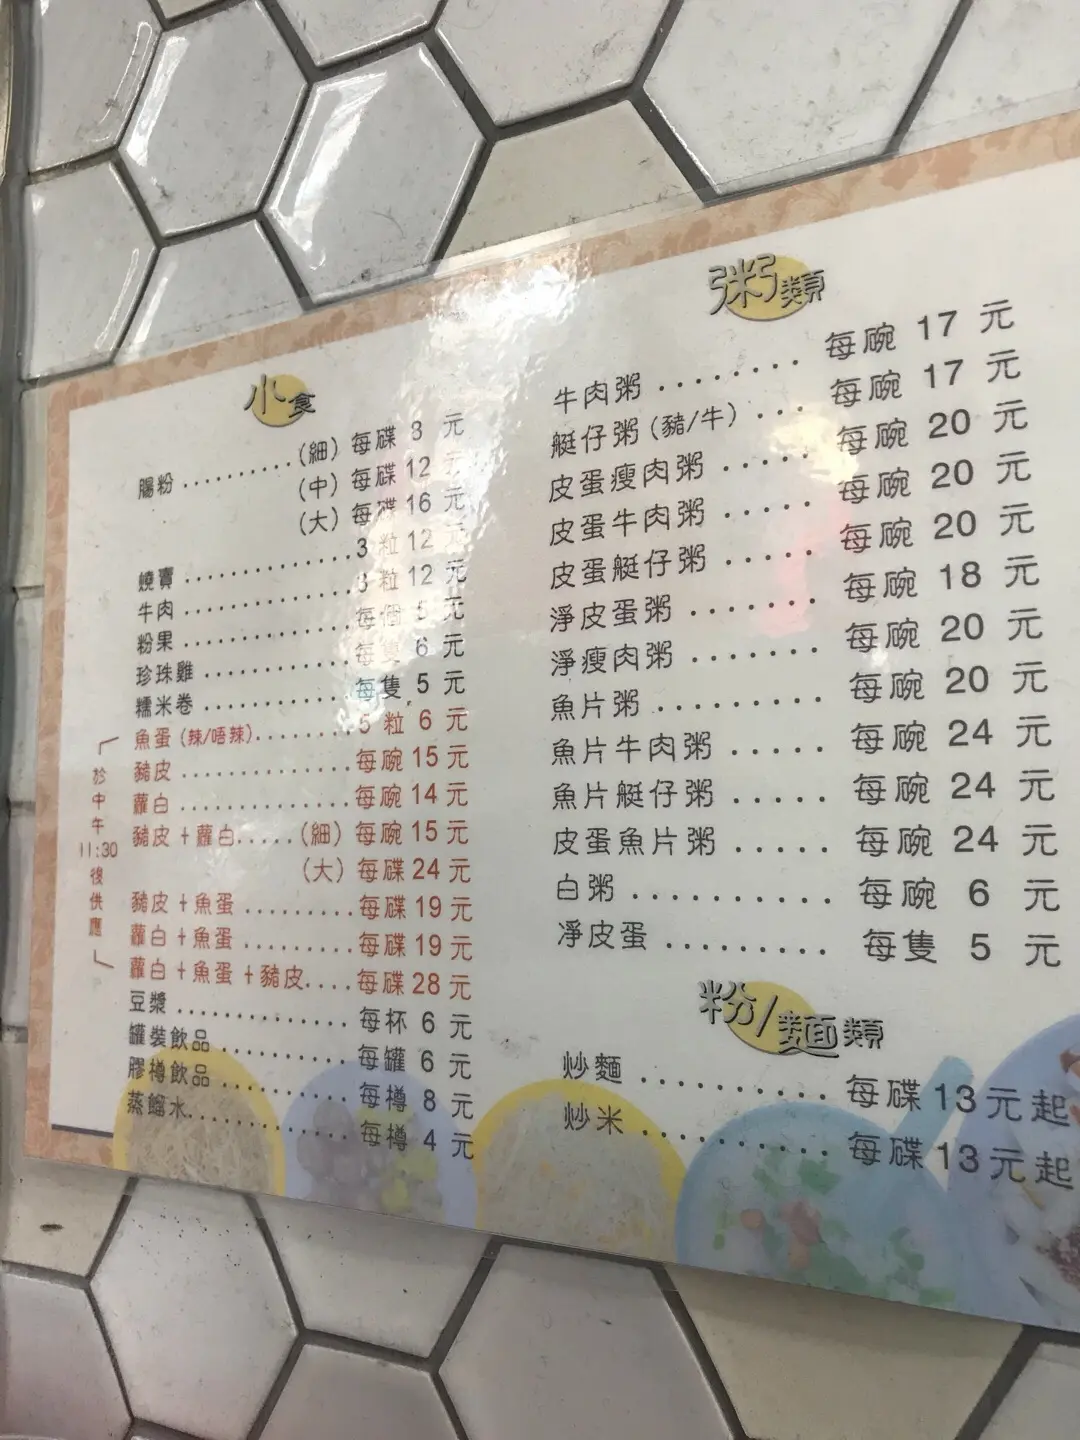 小食
腸粉..........(細) 每碟 8 元
(中) 每碟 12 元
(大) 每碟 16 元
燒賣..............3 粒 12 元
牛肉..............3 粒 12 元
粉果..............每個 5 元
珍珠雞............每隻 6 元
糯米卷............每隻 5 元
魚蛋 (辣/唔辣)........5 粒 6 元
豬皮..............每碗 15 元
蘿白..............每碗 14 元
豬皮+蘿白.....(細) 每碗 15 元
(大) 每碟 24 元
豬皮+魚蛋.........每碟 19 元
蘿白+魚蛋.........每碟 19 元
蘿白+魚蛋+豬皮....每碟 28 元
於中午11:30後供應
豆漿..............每杯 6 元
罐裝飲品..........每罐 6 元
膠樽飲品..........每樽 8 元
蒸餾水............每樽 4 元
粥類
牛肉粥........每碗 17 元
艇仔粥(豬/牛)...每碗 17 元
皮蛋瘦肉粥.....每碗 20 元
皮蛋牛肉粥.....每碗 20 元
皮蛋艇仔粥.....每碗 20 元
淨皮蛋粥.......每碗 18 元
淨瘦肉粥.......每碗 20 元
魚片粥.........每碗 20 元
魚片牛肉粥.....每碗 24 元
魚片艇仔粥.....每碗 24 元
皮蛋魚片粥.....每碗 24 元
白粥..........每碗 6 元
淨皮蛋........每隻 5 元
粉/麵類
炒麵..........每碟 13元起
炒米..........每碟 13元起